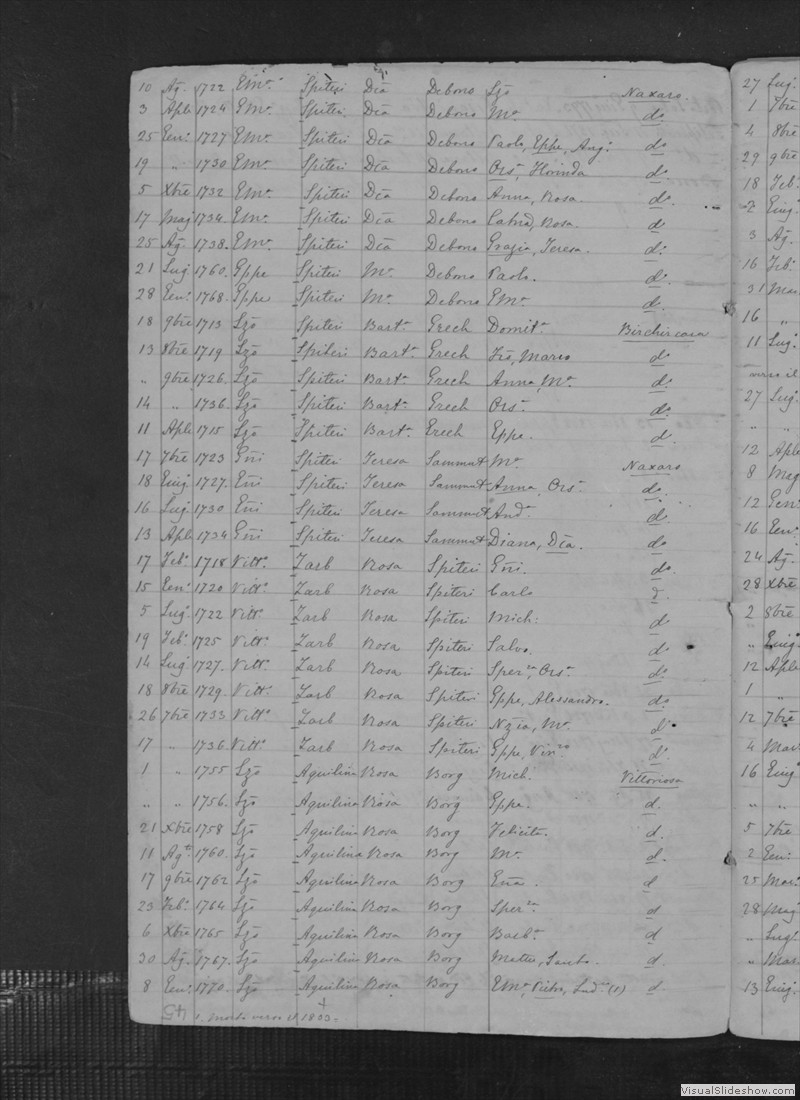 10 Ag. 1722 GMa. Spiteri Dca Debono Lzo Naxaro
3 Aple 1724 GMa. Spiteri Dca Debono Ma. do.
25 Gen. 1727 GMa. Spiteri Dca Debono Paolo, Gppe, Aug. do
19 " 1730 GMa. Spiteri Dca Debono Ors. Florinda do
5 Xbre 1732 GMa. Spiteri Dca Debono Anna, Rosa do.
17 Mag 1734 GMa. Spiteri Dca Debono Catna, Rosa. do
25 Ag. 1738. GMa. Spiteri Dca Debono Grazia, Teresa. do.
21 Lug. 1760. Gppe Spiteri Ma. Debono Paolo. do.
28 Gen. 1768. Gppe Spiteri Ma. Debono GMa. do.
18 9bre 1713 Lzo Spiteri Barta. Grech Domita. Birchircara
13 8bre 1719. Lzo Spiteri Barta. Grech Mario do
" 9bre 1726. Lzo Spiteri Barta. Grech Anna, Ma. do
14 " 1736. Lzo Spiteri Barta. Grech Ors. do.
11 Aple 1715 Lzo Spiteri Barta. Grech Gppe. d.
17 7bre 1723 Gni Spiteri Teresa Sammut Ma. Naxaro
18 Giug 1727. Gni Spiteri Teresa Sammut Anna, Ors. do.
16 Lug 1730 Gni Spiteri Teresa Sammut And. do.
13 Aple 1734 Gni Spiteri Teresa Sammut Diana, Dca. do
17 Feb. 1718 Vitto. Zarb Rosa Spiteri Gni. do.
15 Gen. 1720 Vitto. Zarb Rosa Spiteri Carlo d.
5 Lug. 1722 Vitto. Zarb Rosa Spiteri Mich: do
19 Feb. 1725 Vitto. Zarb Rosa Spiteri Salvo. do
14 Lug. 1727. Vitto. Zarb Rosa Spiteri Sperza, Ors. do.
18 8bre 1729. Vitto. Zarb Rosa Spiteri Gppe, Alessandro. do
26 7bre 1733 Vitto. Zarb Rosa Spiteri Nzia, Ma. d.
17 " 1736. Vitto. Zarb Rosa Spiteri Gppe, Vinzo d.
1 " 1755 Lzo Aquilina Rosa Borg Mich. Vittoriosa
" " 1756. Lzo Aquilina Rosa Borg Gppa. d.
21 Xbre 1758 Lzo Aquilina Rosa Borg Felicita. d.
11 Ago. 1760. Lzo Aquilina Rosa Borg Ma. d.
17 9bre 1762 Lzo Aquilina Rosa Borg Gna. d
23 Feb. 1764 Lzo Aquilina Rosa Borg Sperza. d
6 Xbre 1765 Lzo Aquilina Rosa Borg Barba. d
30 Ag. 1767. Lzo Aquilina Rosa Borg Matteo, Santo. d.
8 Gen. 1770. Lzo Aquilina Rosa Borg GMa. Pietro, Lud. (1) d.
45 1. verso il 1803.
27 Lug.
1 7bre
4 8bre
29 9bre
18 Feb.
2 Giug.
3 Ag.
16 Feb.
31 Mar.
16 "
11 Lug.
verso il
27 Lug.
" "
12 Aple
8 Mag
12 Gen.
16 Gen.
24 Ag.
28 Xbre
2 8bre
" Giug.
12 Aple
1 "
12 7bre
4 Mar.
16 Giug.
" "
5 7bre
2 Gen.
25 Mar.
28 Mag.
" Lug.
" Mar.
13 Giug.
VisualSlideshow.com